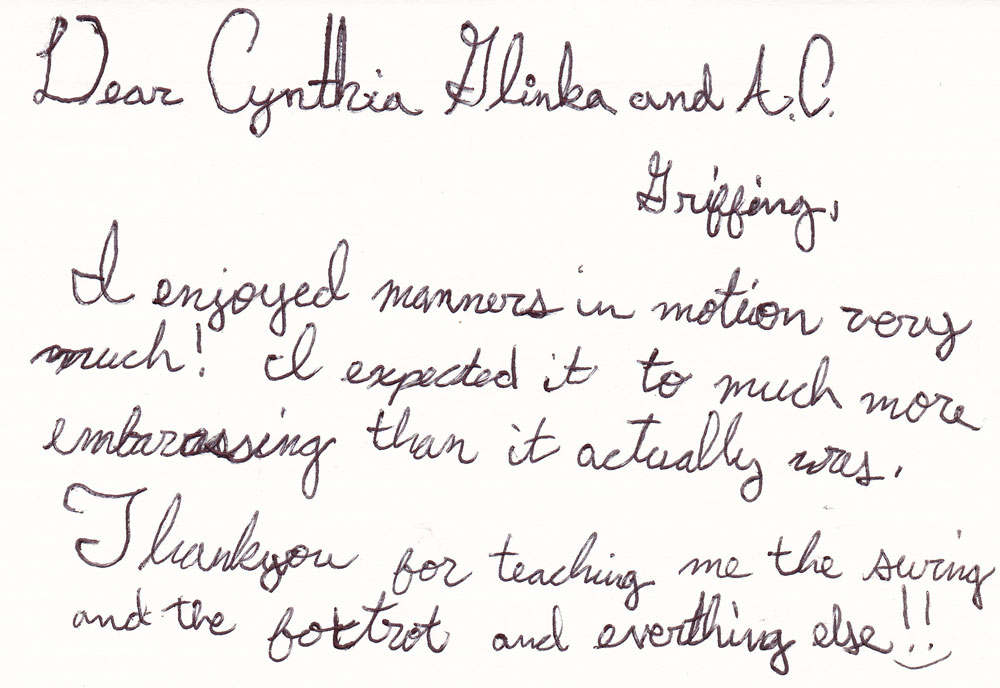 Dear Cynthia Glinka and A.C.
Griffing,
I enjoyed manners in motion very
much! I expected it to much more
embarassing than it actually was.
Thankyou for teaching me the swing
and the foxtrot and everthing else!!